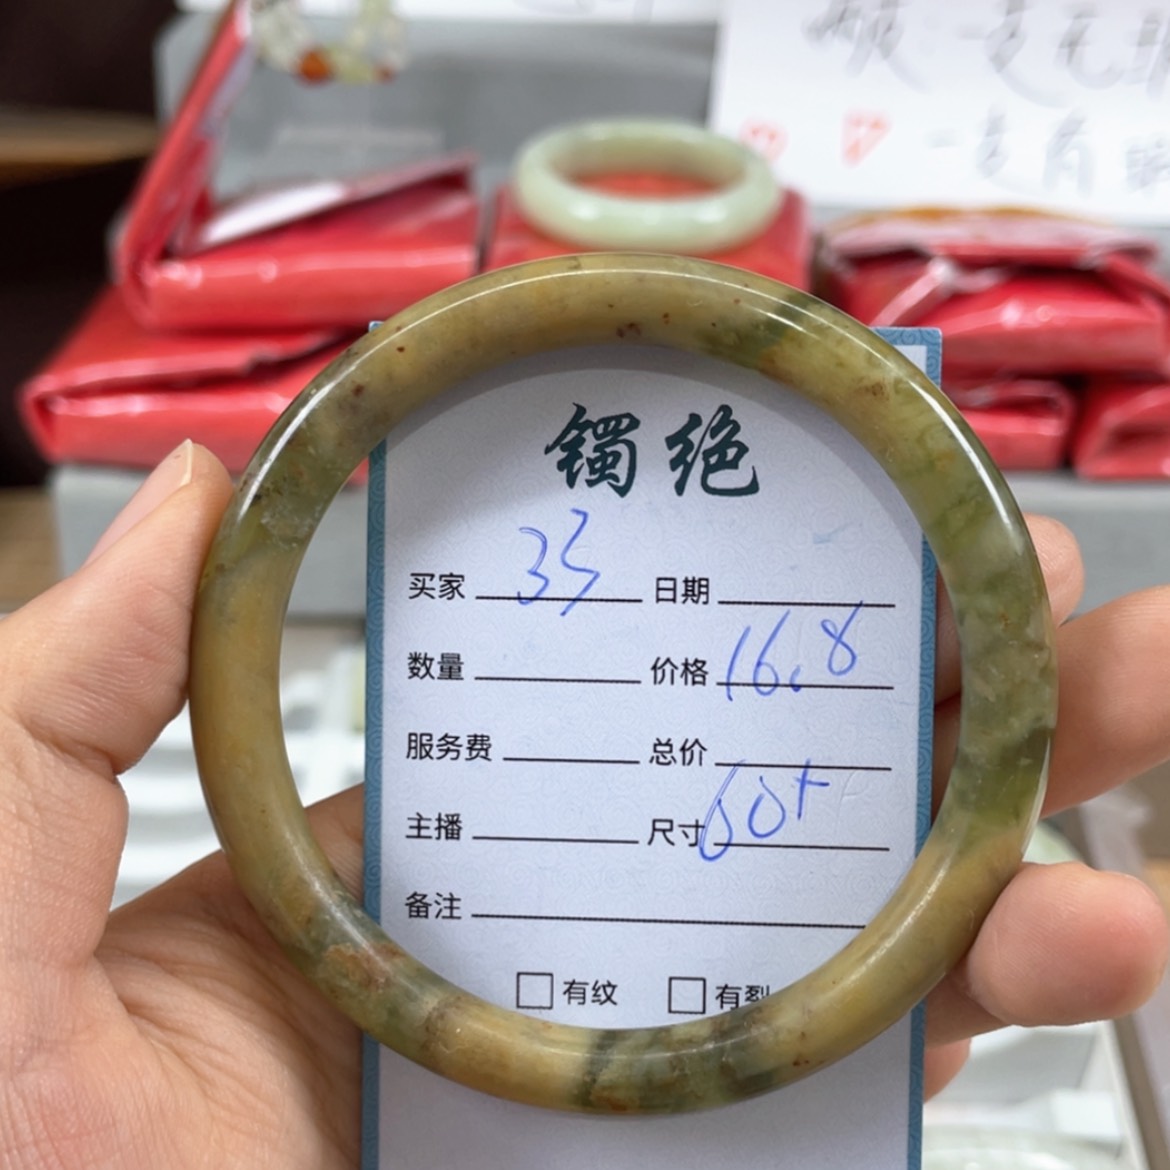 一支无
一支有
镯绝
买家 35 日期
数量 价格 16.8
服务费 总价
主播 尺寸 60+
备注
□有纹 □有裂